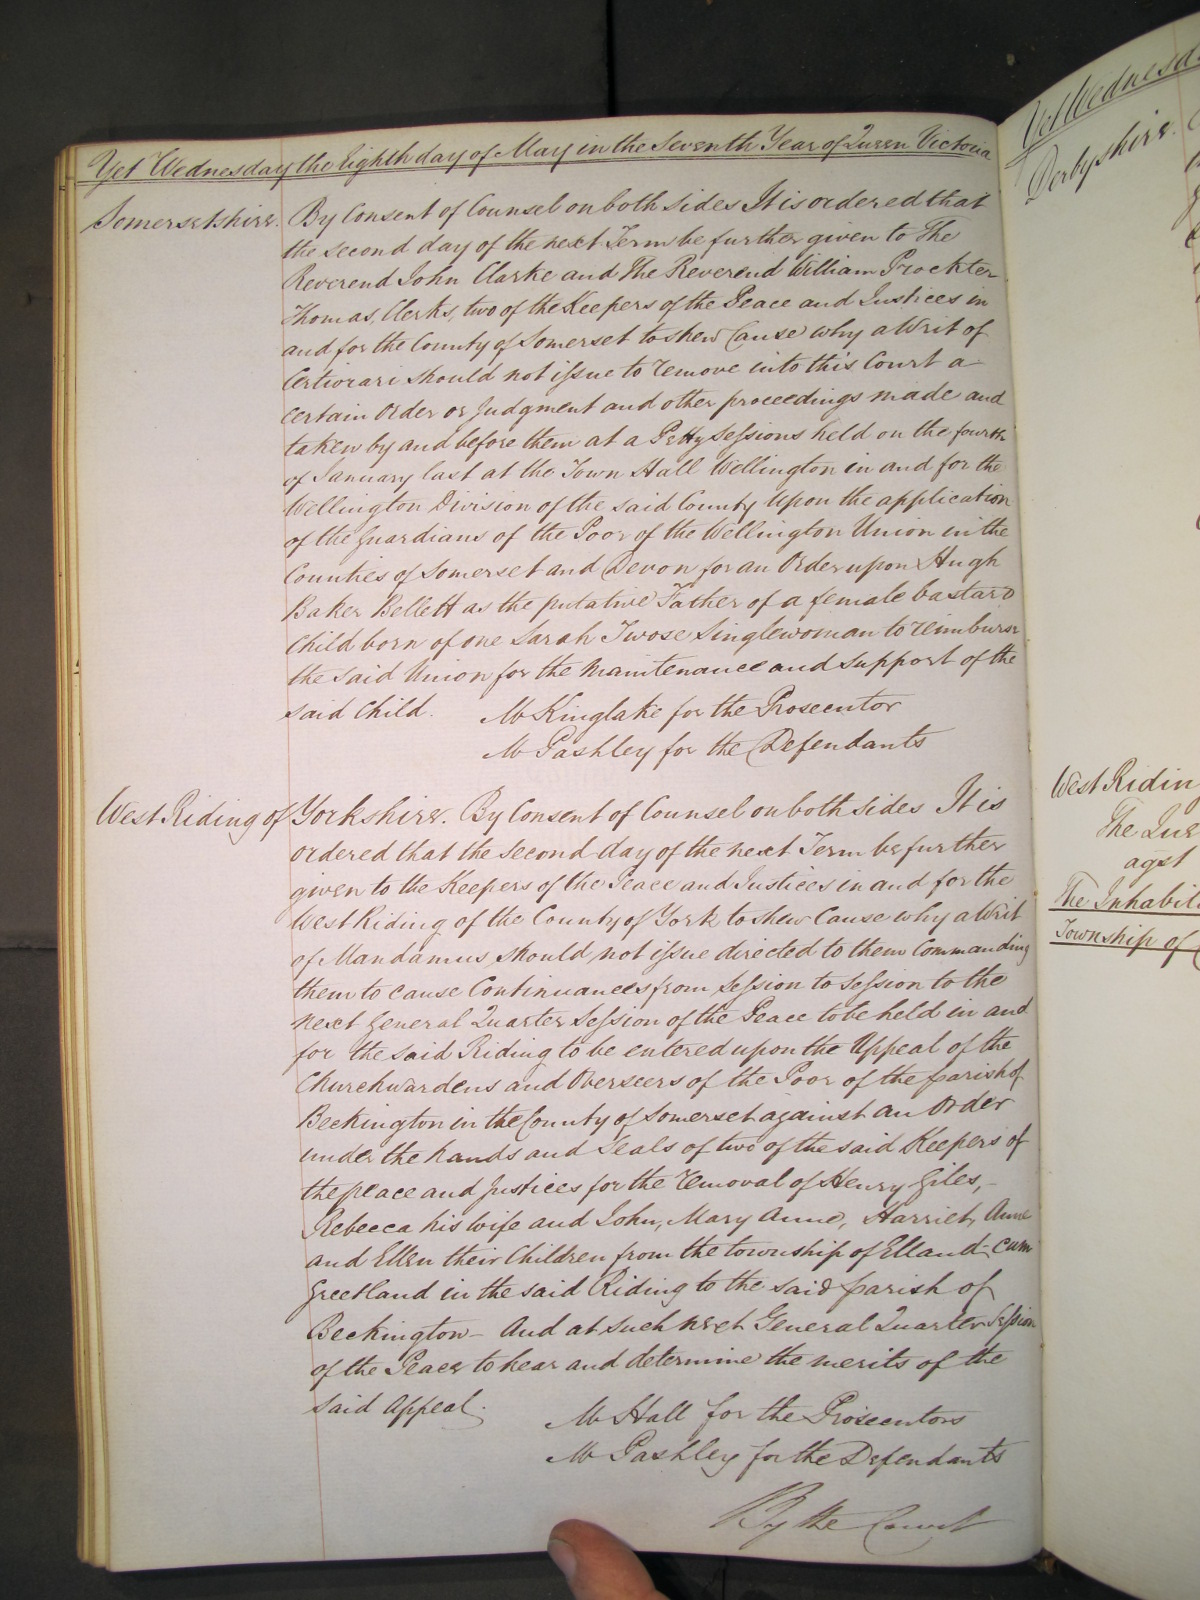 Yet Wednesday the Eighth day of May in the Seventh Year of Queen Victoria
Somersetshire. By Consent of Counsel on both sides It is ordered that
the second day of the next Term be further given to The
Reverend John Clarke and The Reverend William Prockter
Thomas, Clerks, two of the Keepers of the Peace and Justices in
and for the County of Somerset to shew Cause why a Writ of
Certiorari should not issue to remove into this Court a
certain Order or Judgment and other proceedings made and
taken by and before them at a Petty Sessions held on the fourth
of January last at the Town Hall Wellington in and for the
Wellington Division of the said County upon the application
of the Guardians of the Poor of the Wellington Union in the
Counties of Somerset and Devon for an Order upon Hugh
Baker Bellett as the putative Father of a female bastard
Child born of one Sarah Twose Singlewoman to reimburse
the said Union for the maintenance and support of the
said Child.
Mr Kinglake for the Prosecutor
Mr Pashley for the Defendants
West Riding of Yorkshire. By Consent of Counsel on both sides It is
ordered that the second day of the next Term be further
given to the Keepers of the Peace and Justices in and for the
West Riding of the County of York to shew Cause why a Writ
of Mandamus should not issue directed to them Commanding
them to cause Continuances from Session to Session to the
next General Quarter Session of the Peace to be held in and
for the said Riding to be entered upon the Appeal of the
Churchwardens and Overseers of the Poor of the parish of
Beckington in the County of Somerset against an Order
under the hands and Seals of two of the said Keepers of
the peace and Justices for the removal of Henry Giles,
Rebecca his wife and John, Mary Anne, Harriet, Anne
and Ellen their Children from the township of Elland-cum
Greetland in the said Riding to the said parish of
Beckington - And at such next General Quarter Session
of the Peace to hear and determine the merits of the
said Appeal.
Mr Hall for the Prosecutors
Mr Pashley for the Defendants
By the Court
Yet Wednesda
Derbyshire.
West Ridin
The Que
agst
The Inhabit
Township of